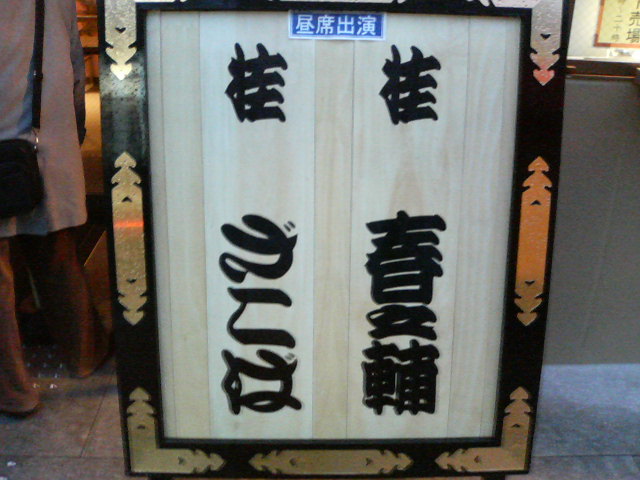 昼席出演
桂 春之輔
桂 ざこば
売場